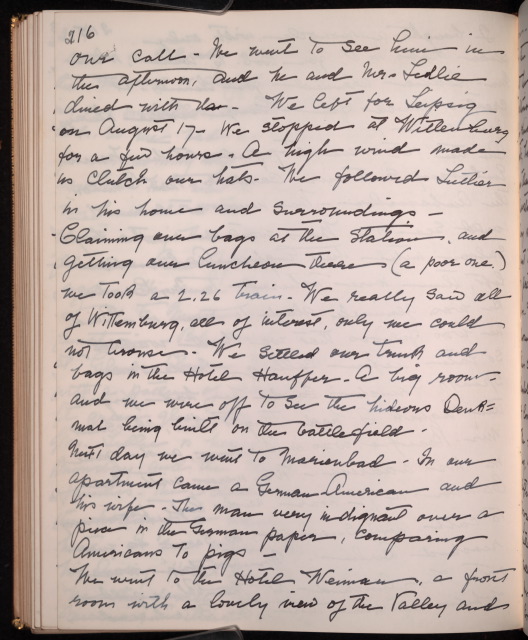 216
our call - We went to see him in
the afternoon, and he and Mr. Ledlie
dined with us - We left for Leipsig
on August 17 - We stopped at Wittenburg
for a few hours - A high wind made
us clutch our hats - We followed Luther
in his home and surroundings -
Claiming our bags at the Station, and
getting our luncheon there (a poor one)
we took a 2.26 train - We really saw all
of Wittemburg, all of interest, only we could
not browse - We settled our trunk and
bags in the Hotel Hauffer - A big room -
and we were off to see the hideous Denk=
mal being built on the battlefield -
Next day we went to Marienbad - In our
apartment came a German American and
his wife - The man very indignant over a
piece in the German paper, comparing
Americans to pigs -
We went to the Hotel Weimar, a front
room with a lovely view of the Valley and